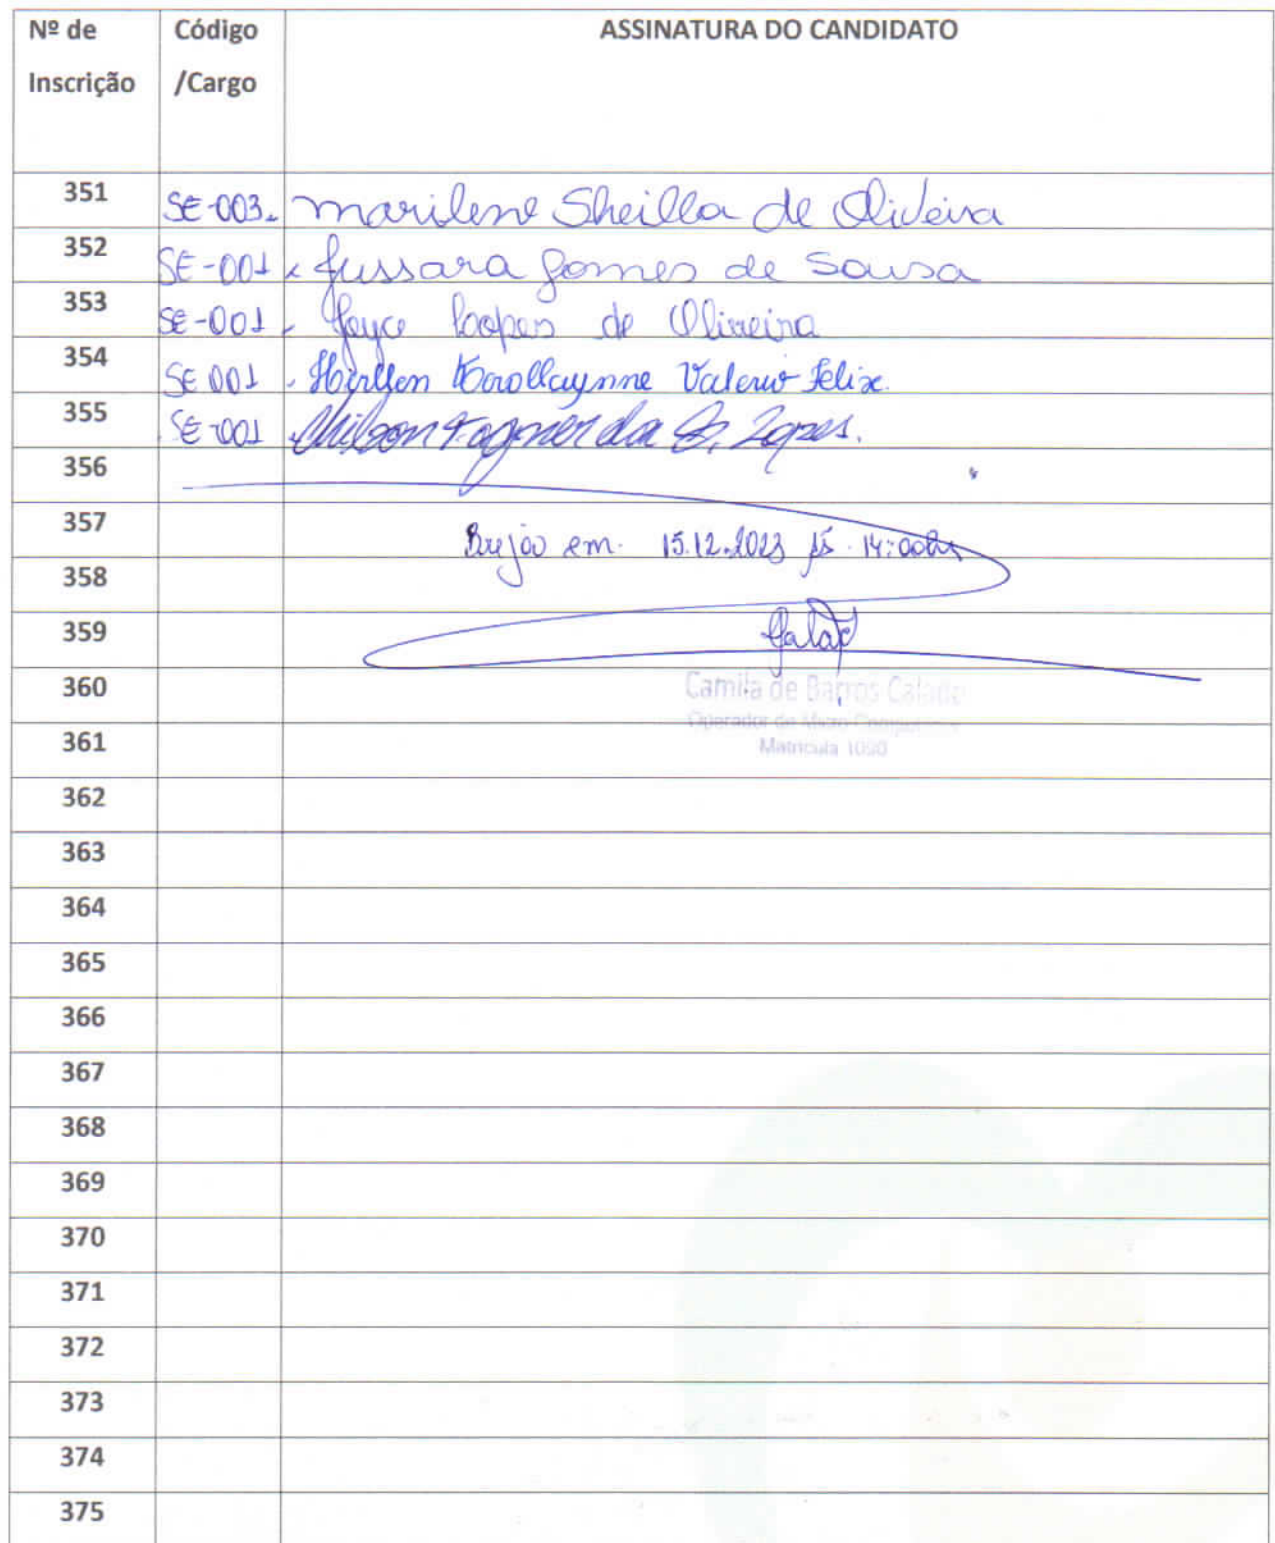 Nº de Inscrição Código /Cargo ASSINATURA DO CANDIDATO
351 SE-003. marilene Sheilla de Oliveira
352 SE-001 Jussara Gomes de Sousa
353 SE-001. Joyce Lopes de Oliveira
354 SE 001. Hirllen Karollaynne Valerio Felix.
355 SE-001 Wagner da S. Lopes.
356
357 Brejão em. 15.12.2023 às 14:00hs
358
359
360 Camila de Barros Calado
361 Operador de Micro Computador
Matricula 1090
362
363
364
365
366
367
368
369
370
371
372
373
374
375